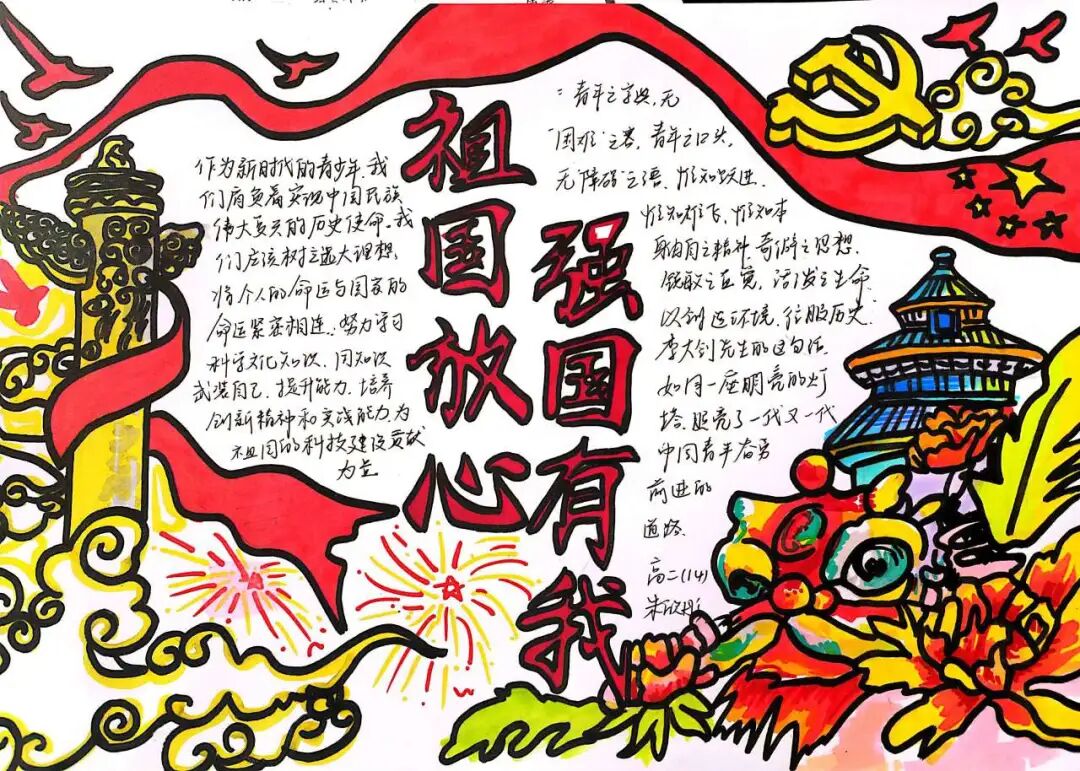 祖国放心
强国有我
作为新时代的青少年,我
们肩负着实现中国民族
伟大复兴的历史使命。我
们应该树立远大理想,
将个人的命运与国家的
命运紧密相连,努力学习
科学文化知识、用知识
武装自己,提升能力,培养
创新精神和实践能力,为
祖国的科技建设贡献
力量
"青年之字典,无
"困难"之字,青年之口头,
无"障碍"之语,惟知跃进,
惟知雄飞,惟知本
身自由之精神,奇僻之思想,
锐敏之直觉,活泼之生命,
以创造环境,征服历史.
李大钊先生的这句话,
如同一座明亮的灯
塔,照亮了一代又一代
中国青年奋勇
前进的
道路.
高二(14)
朱欣